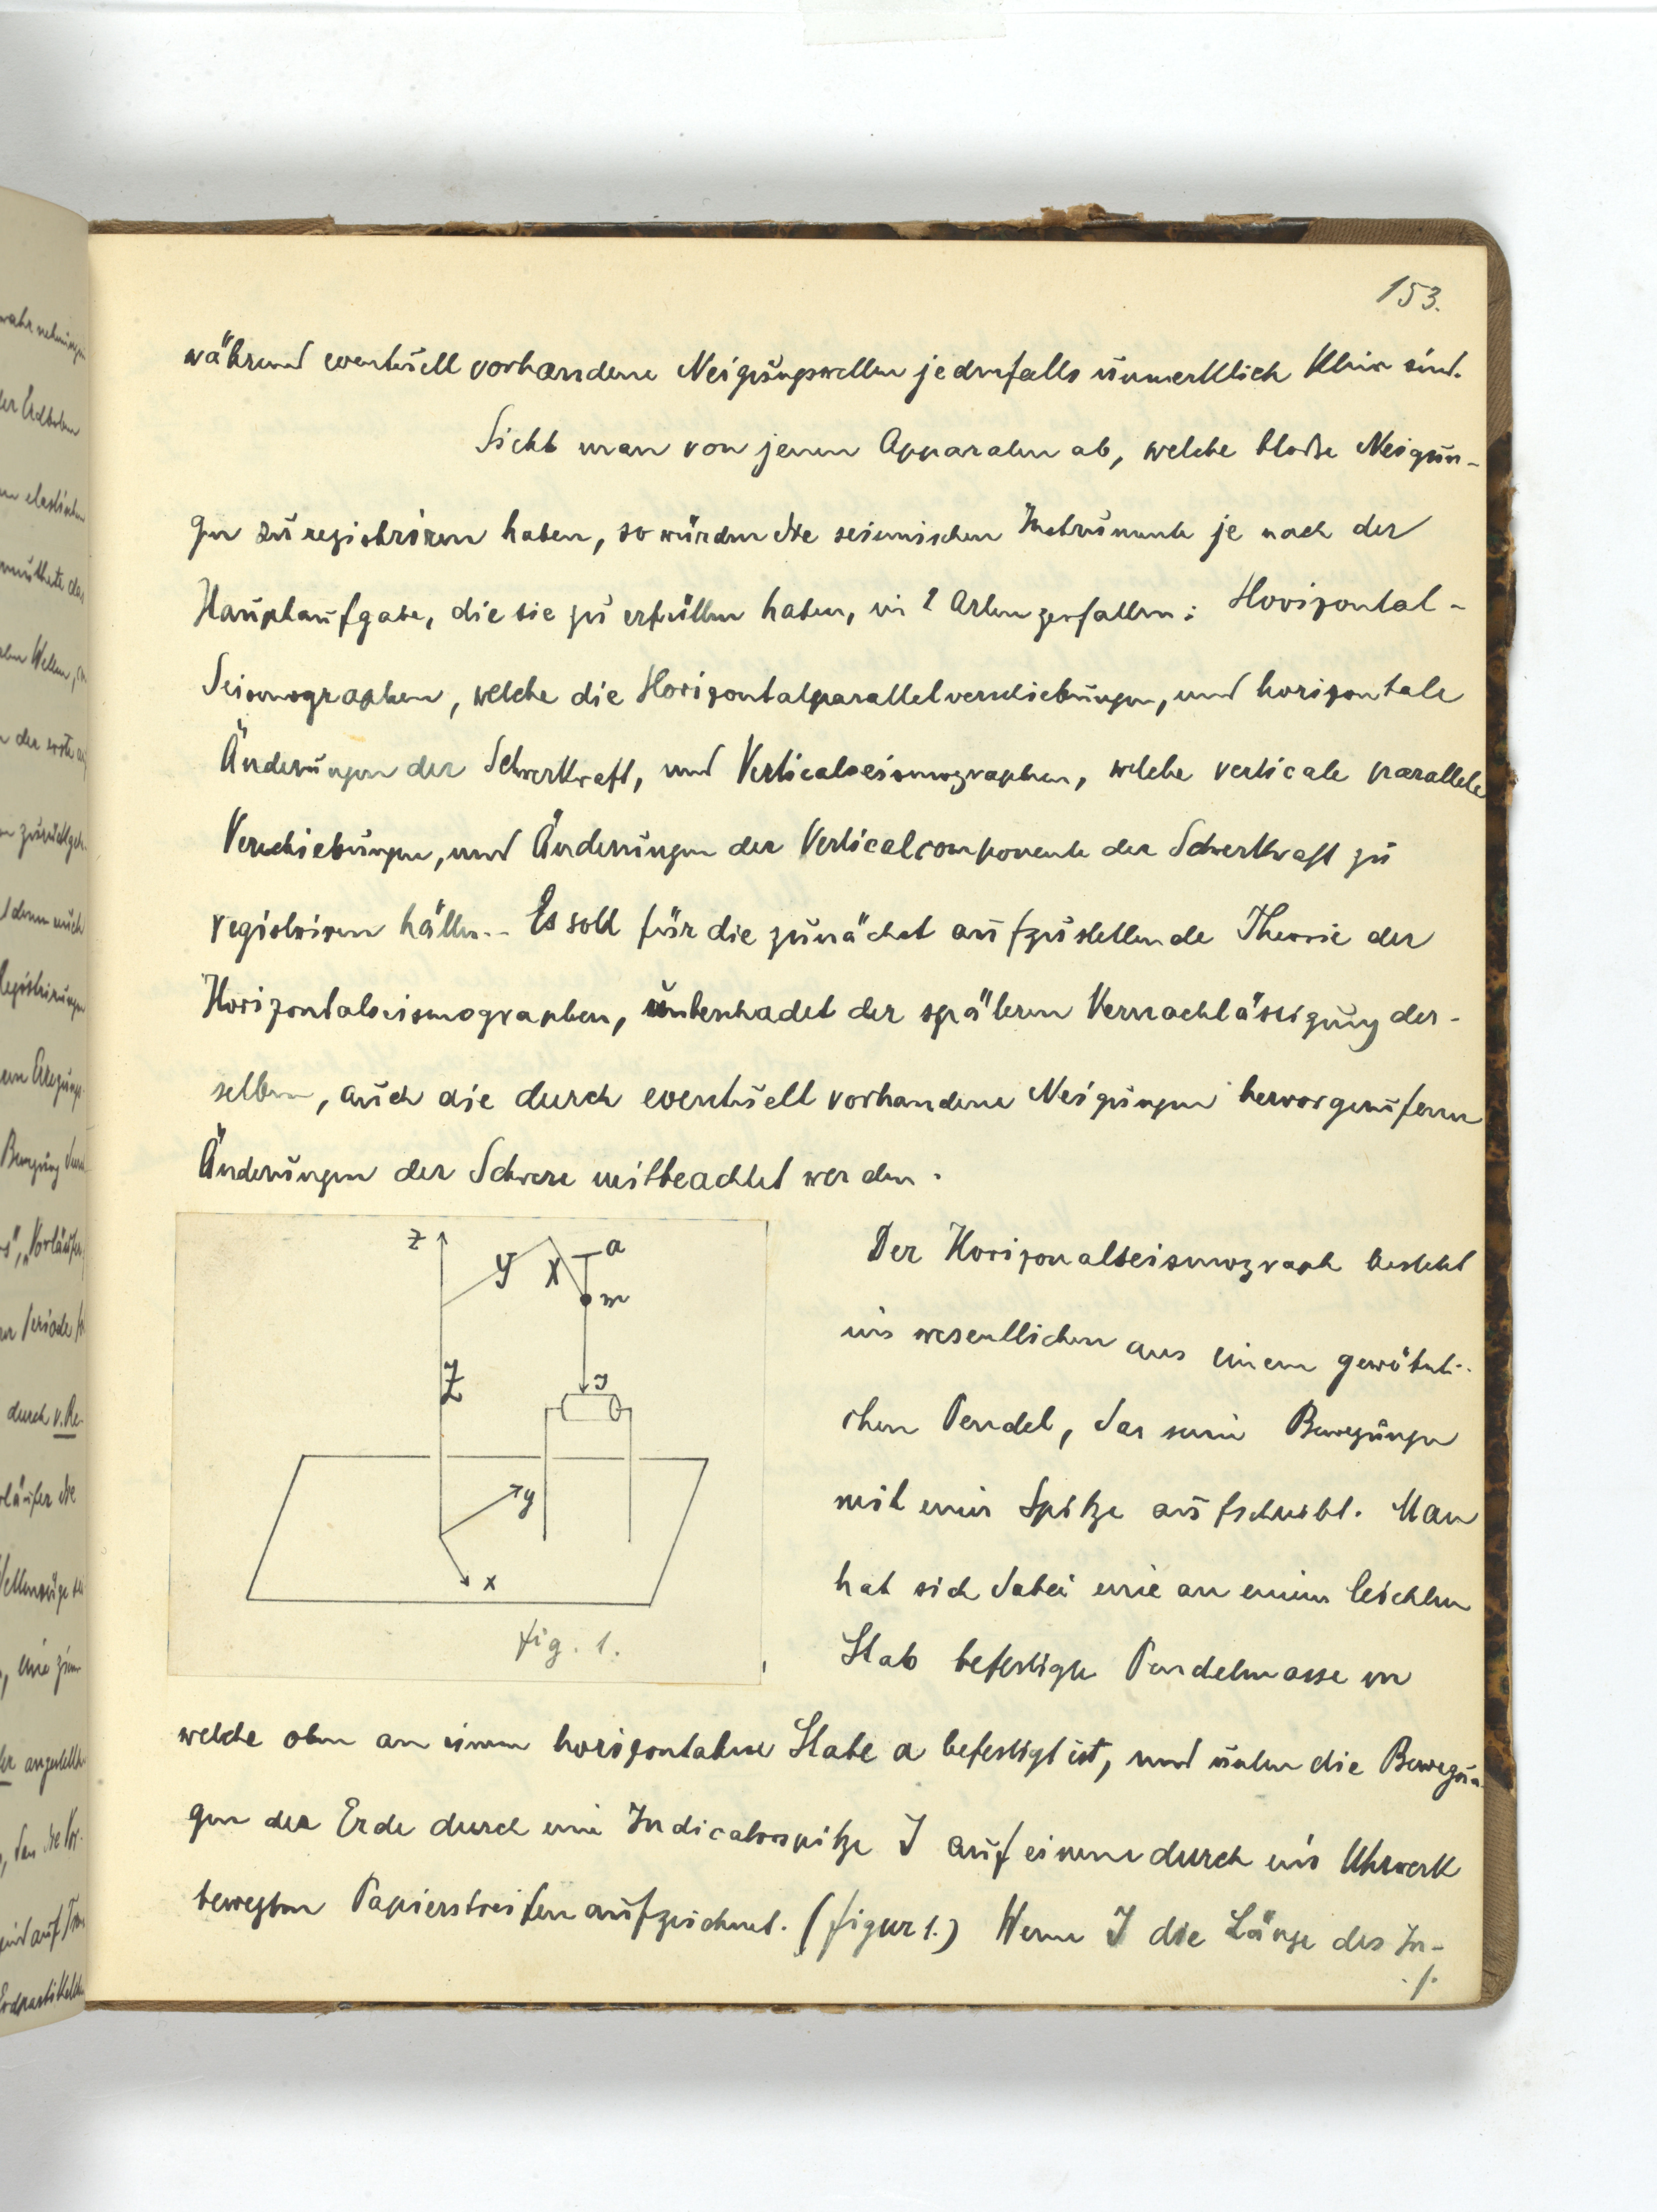 153.
während eventuell vorhandene Neigungswellen jedenfalls unmerklich klein sind.
Sieht man von jenen Apparaten ab, welche bloße Neigun-
gen zu registriren haben, so würden die seismischen Instrumente je nach der
Hauptaufgabe, die sie zu erfüllen haben, in 2 Arten zerfallen: Horizontal-
Seismographen, welche die Horizontalparallelverschiebungen, und horizontale
Änderungen der Schwerkraft, und Verticalseismographen, welche verticale parallele
Verschiebungen, und Änderungen der Verticalcomponente der Schwerkraft zu
registriren hätten.. Es soll für die zunächst aufzustellende Theorie der
Horizontalseismographen, unbeschadet der spätern Vernachlässigung der-
selben, auch die durch eventuell vorhandene Neigungen hervorgerufenen
Änderungen der Schwere mitbeachtet werden.
z
y
X
a
m
J
Z
y
x
fig. 1.
Der Horizonalseismograph besteht
im wesentlichen aus einem gewöhnli-
chen Pendel, das seine Bewegungen
mit einer Spitze aufschreibt. Man
hat sich dabei eine an einem leichten
Stab befestigte Pendelmasse m
welche oben an einem horizontalen Stabe a befestigt ist, und unten die Bewegun-
gen der Erde durch eine Indicatorspitze J auf einem durch ein Uhrwerk
bewegten Papierstreifen aufzeichnet. (figur 1.) Wenn J die Länge des In-
./.
wahrnehmungen
der Erdbeben
elastischen
Wellen,
der erste
Registrirungen
Bewegung durch
"Vorläufer
Periode
durch v. Re-
Wellenzüge
angestellt
auf
Erdpartikelchen